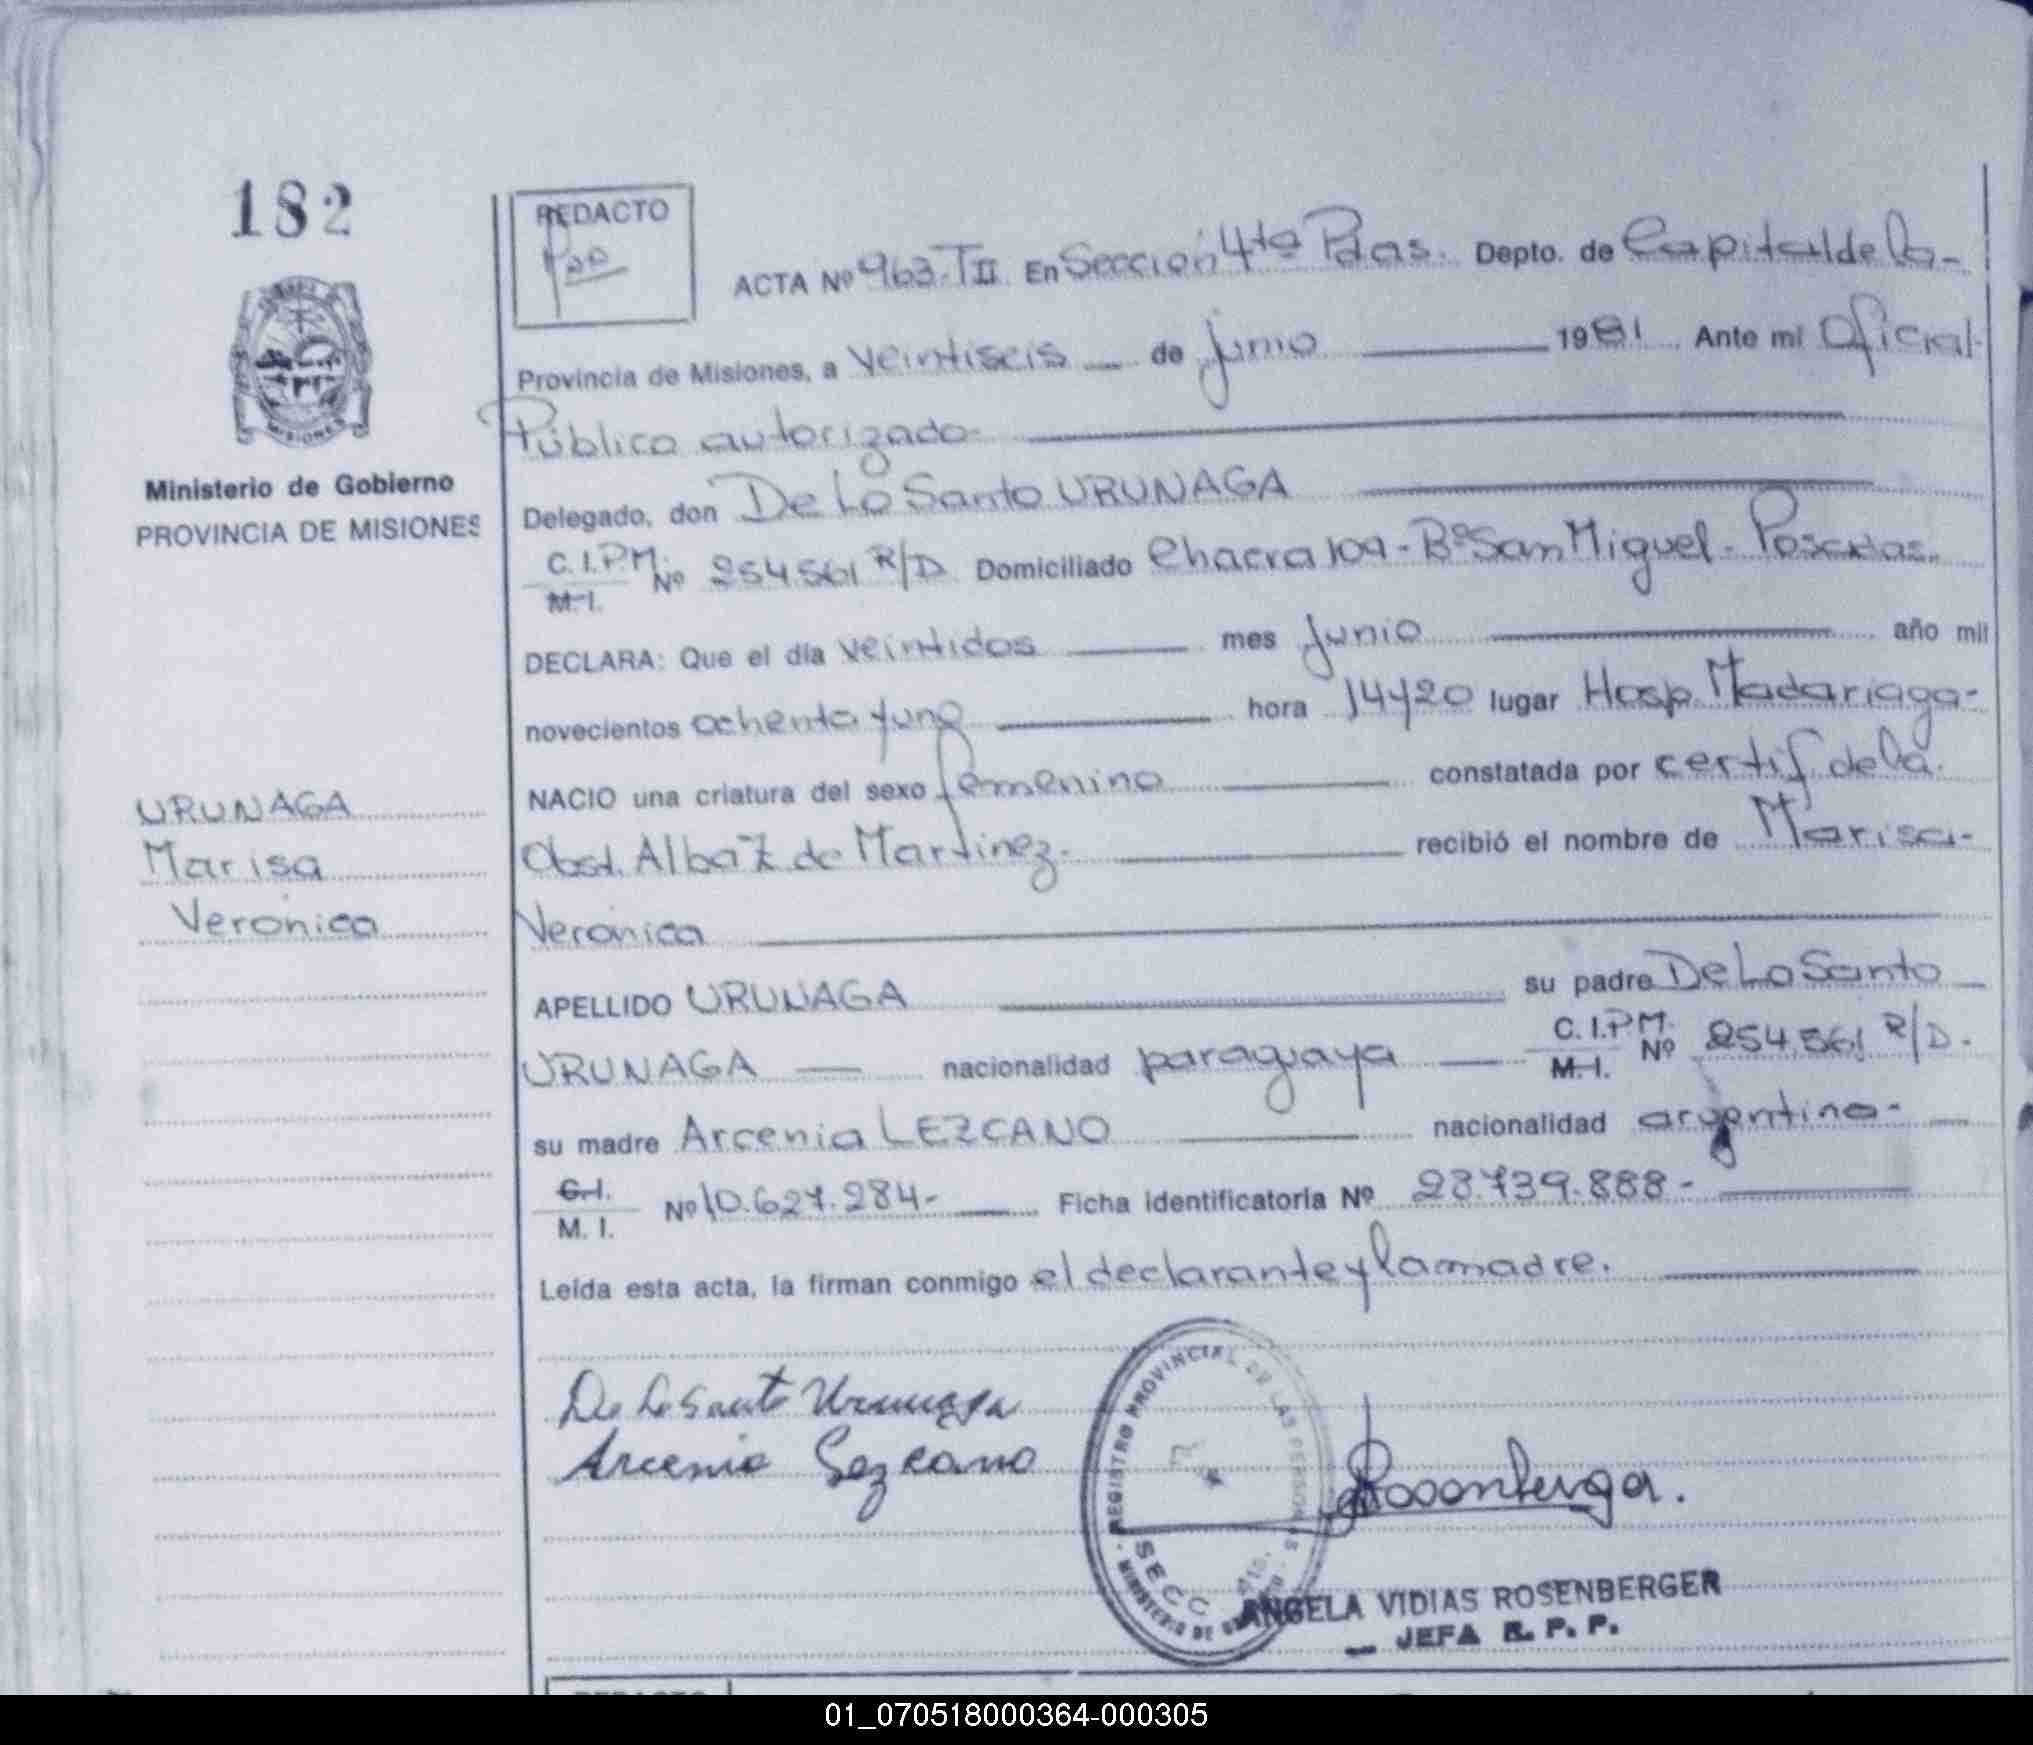 182
REDACTO
ACTA Nº 963-TII En Sección 4ta Pdas. Depto. de Capital de la-
Provincia de Misiones, a veintiseis de junio 1981 Ante mi Oficial
Público autorizado-
Ministerio de Gobierno
PROVINCIA DE MISIONES
Delegado, don De Lo Santo URUNAGA
C.I.P.M. M.I. Nº 254561 R/D Domiciliado Chacra 109-Bº San Miguel-Posadas.
DECLARA: Que el día veintidos mes Junio año mil
novecientos ochenta y uno hora 14y20 lugar Hosp. Madariaga-
NACIO una criatura del sexo femenino constatada por certif de la
Obst. Alba Z de Martinez- recibió el nombre de Marisa-
Veronica
URUNAGA
Marisa
Veronica
APELLIDO URUNAGA su padre De Lo Santo
URUNAGA nacionalidad paraguaya C.I.P.M. M.I. Nº 254.561 R/D.
su madre Arcenia LEZCANO nacionalidad argentina-
C.I. M.I. Nº 10.627.284- Ficha identificatoria Nº 28.739.888-
Leída esta acta, la firman conmigo el declarante y la madre.
De Lo Santo Urunaga
Arcenia Lezcano
REGISTRO PROVINCIAL DE LAS PERSONAS
MINISTERIO DE
SECC
Rosenberger.
ANGELA VIDIAS ROSENBERGER
JEFA R. P. P.
MISIONES
01_070518000364-000305